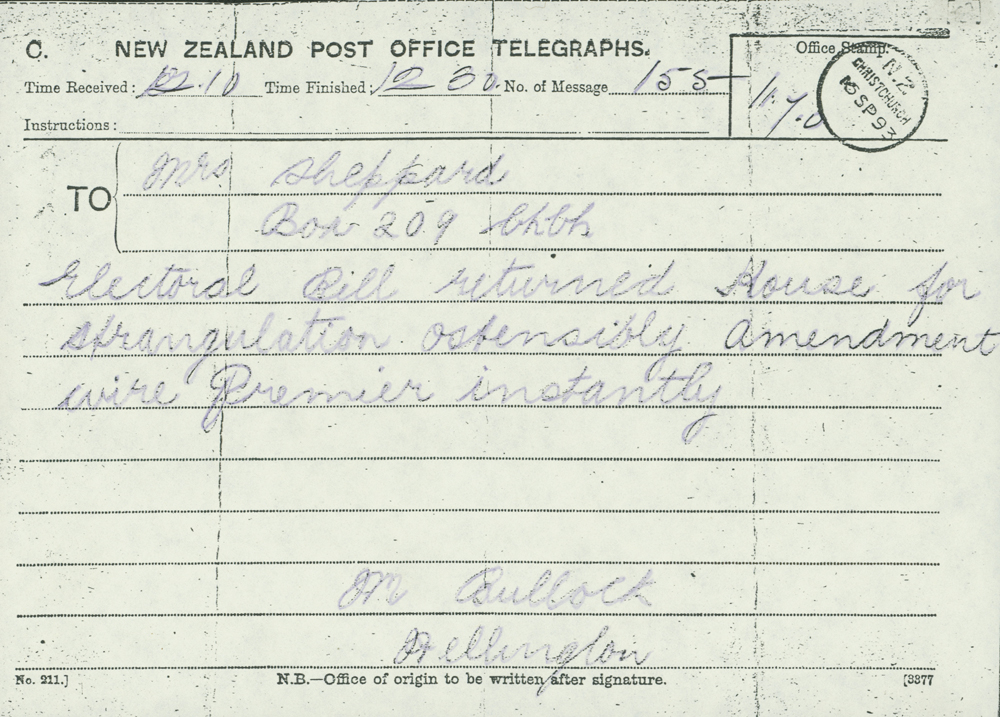 C. NEW ZEALAND POST OFFICE TELEGRAPHS.
Office Stamp.
Time Received: 12.10 Time Finished: 12 30. No. of Message 155
N.Z
CHRISTCHURCH
5 SP 93
Instructions:
TO
Mrs Sheppard
Box 209 Chch
Electoral Bill returned House for
strangulation ostensibly amendment
wire Premier instantly
M Bullock
Wellington
No. 211.]
N.B.—Office of origin to be written after signature.
[3377